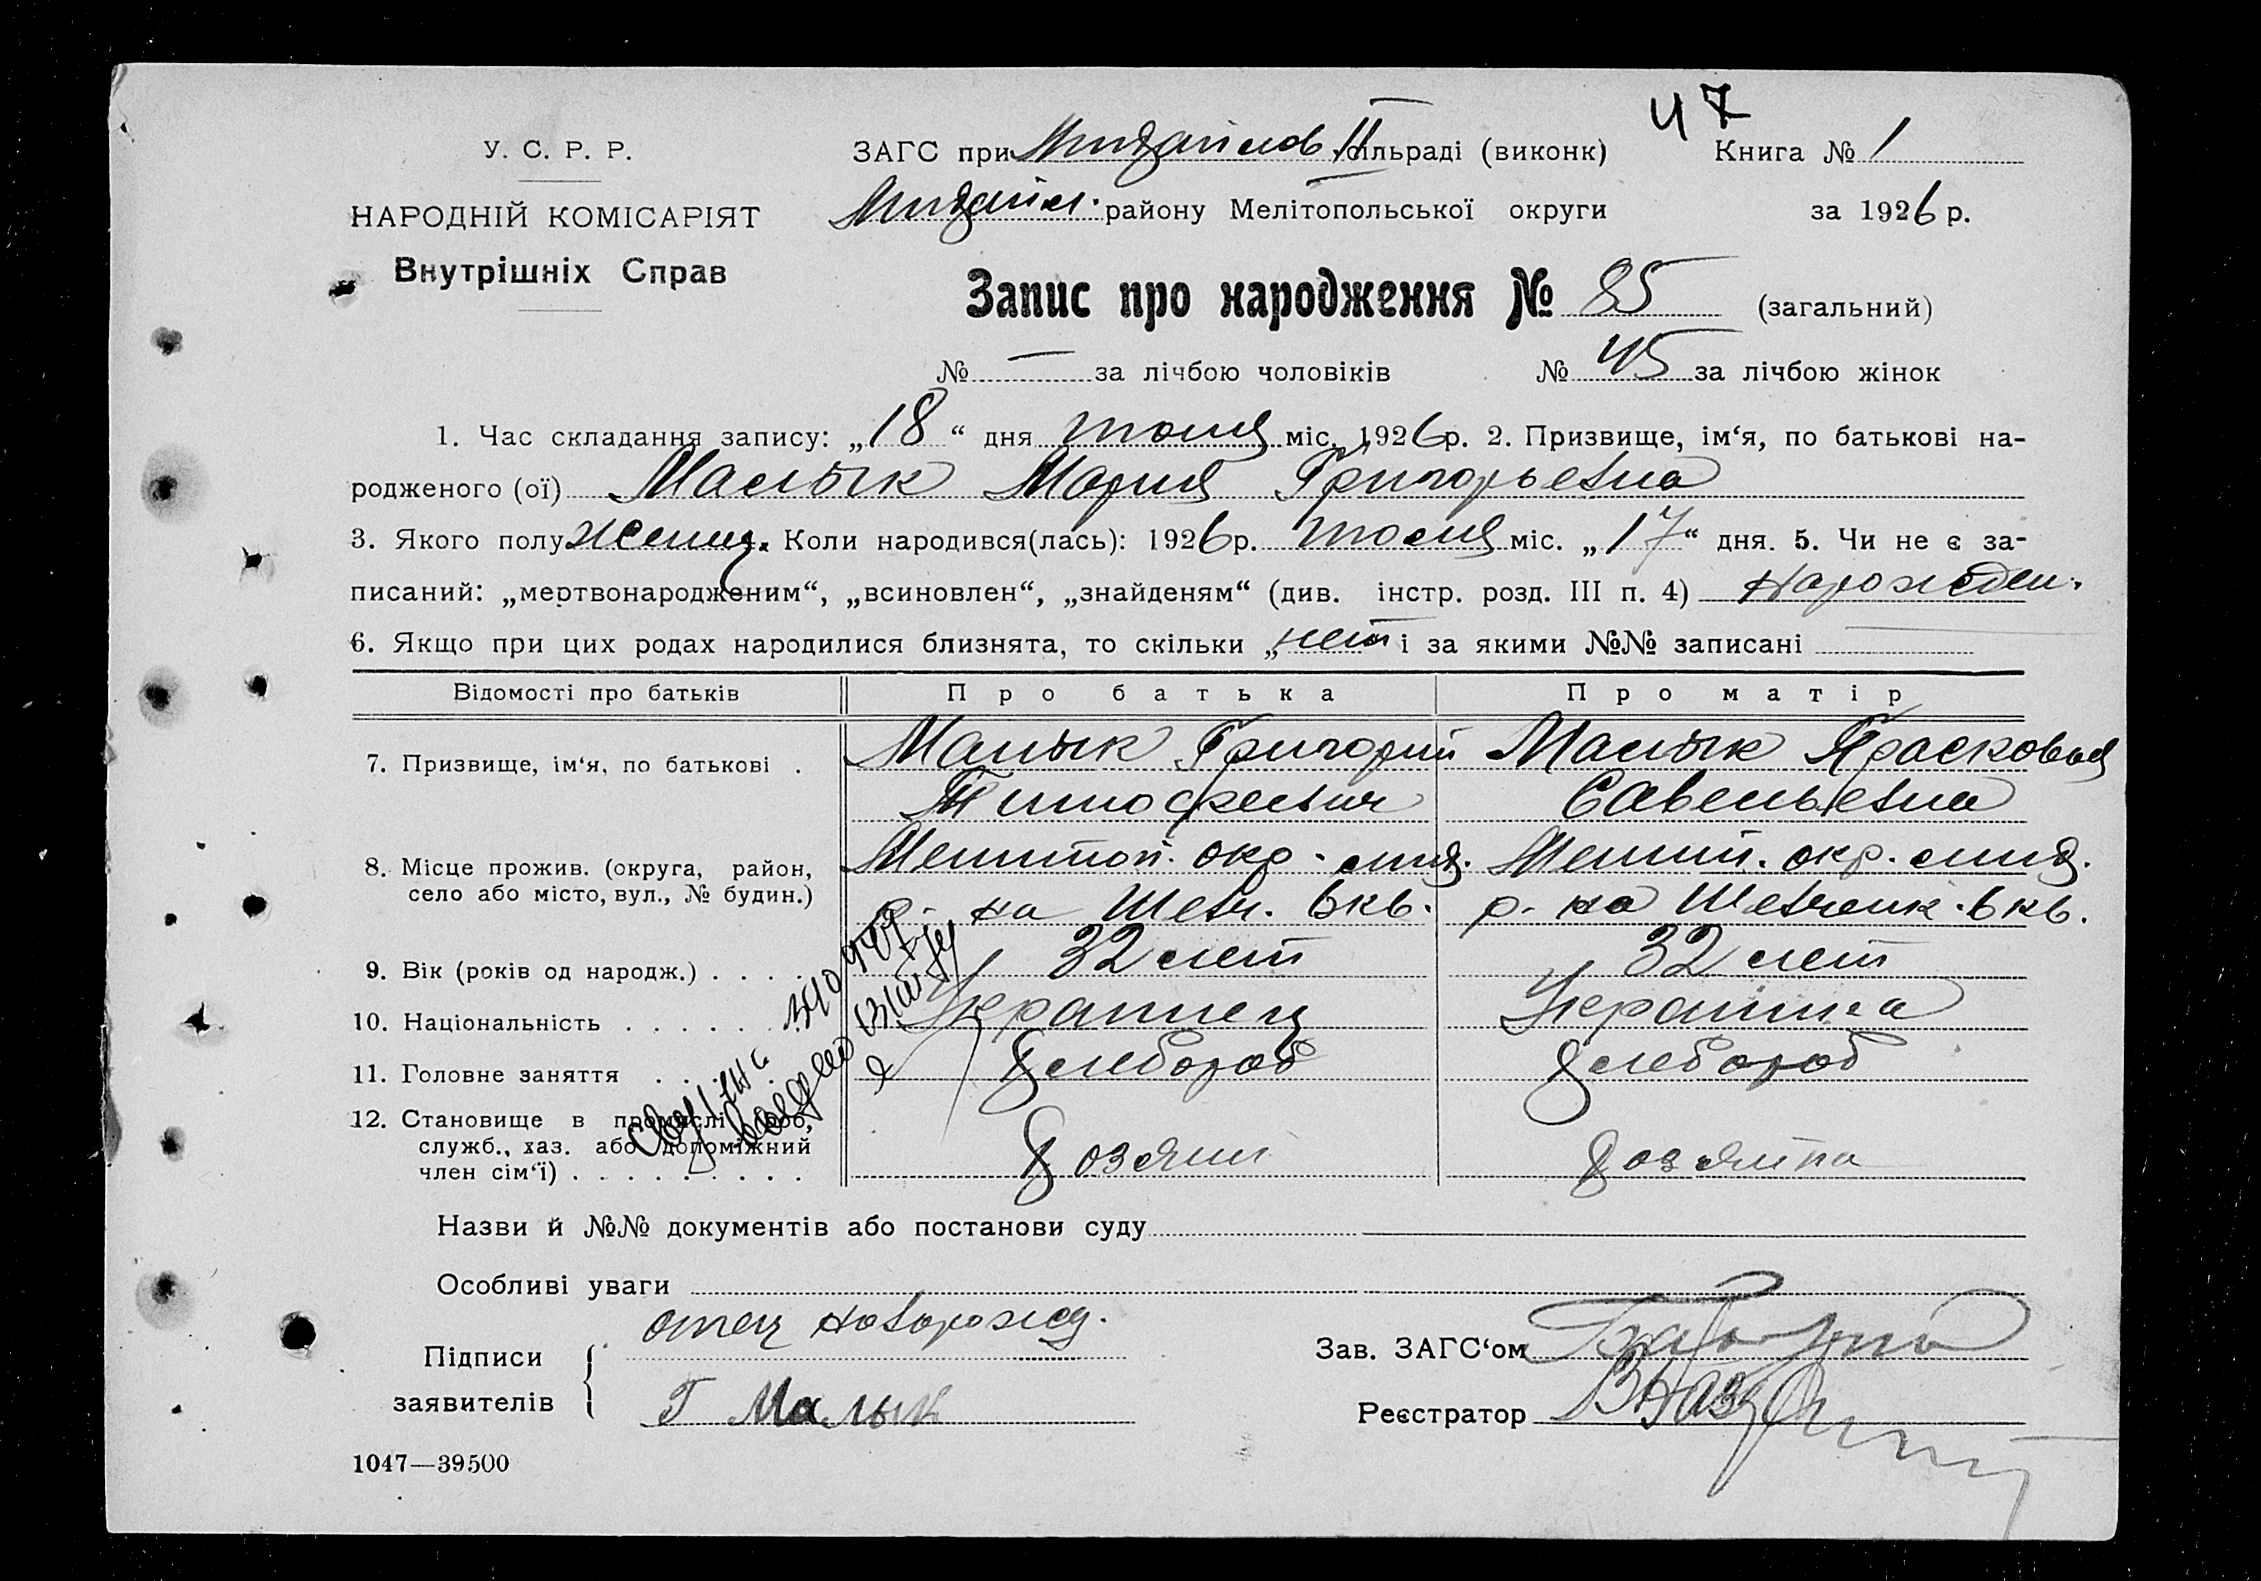 47
У. С. Р. Р.
НАРОДНІЙ КОМІСАРІЯТ
Внутрішніх Справ
ЗАГС при Михайлов. ІІ сільраді (виконк) Книга № 1
Михайл. району Мелітопольської округи за 1926 р.
Запис про народження № 85 (загальний)
№ — за лічбою чоловіків № 45 за лічбою жінок
1. Час складання запису: „18“ дня июля міс. 1926 р. 2. Призвище, ім‘я, по батькові на-
родженого (ої) Малык Мария Григорьевна
3. Якого полу женщ. Коли народився(лась): 1926 р. июля міс. „17“ дня. 5. Чи не є за-
писаний: „мертвонародженим“, „всиновлен“, „знайденям“ (див. інстр. розд. III п. 4) Нарожден.
6. Якщо при цих родах народилися близнята, то скільки „нет і за якими №№ записані
Відомості про батьків Про батька Про матір
7. Призвище, ім‘я, по батькові . Малык Григорий Малык Прасковья
Тимофеевич Савельевна
8. Місце прожив. (округа, район, Мелитоп. окр. мих. Мелит. окр. мих.
село або місто, вул., № будин.) р-на Шевч. 6 кв. р-на Шевченк. 6 кв.
9. Вік (років од народж.) . . . . 32 лет 32 лет
10. Національність . . . . . . Украинец Украинка
11. Головне заняття . . . . Хлебороб Хлебороб
12. Становище в промислі роб,
служб., хаз. або допоміжний
член сім‘ї) . . . . . . . . . Хозяин Хозяйка
Назви й №№ документів або постанови суду
Особливі уваги
отец новорожд.
Підписи Зав. ЗАГС‘ом
заявителів Г Малык Реєстратор
1047—39500